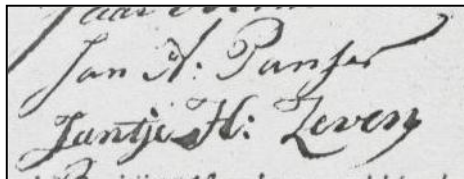 Jan A: Panser
Jantje H: Zeven